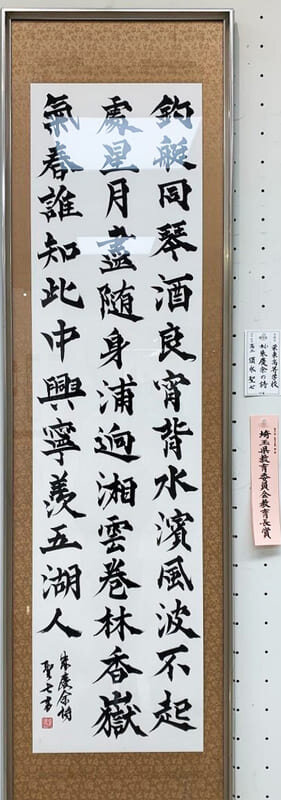 釣艇同琴酒良宵背水濱風波不起
處星月盡随身浦逈湘雲巻林香嶽
氣春誰知此中興寧羨五湖人
朱慶余詩
聖七書
栄東高等学校
朱慶余の詩
須永聖七
埼玉県教育委員会教育長賞